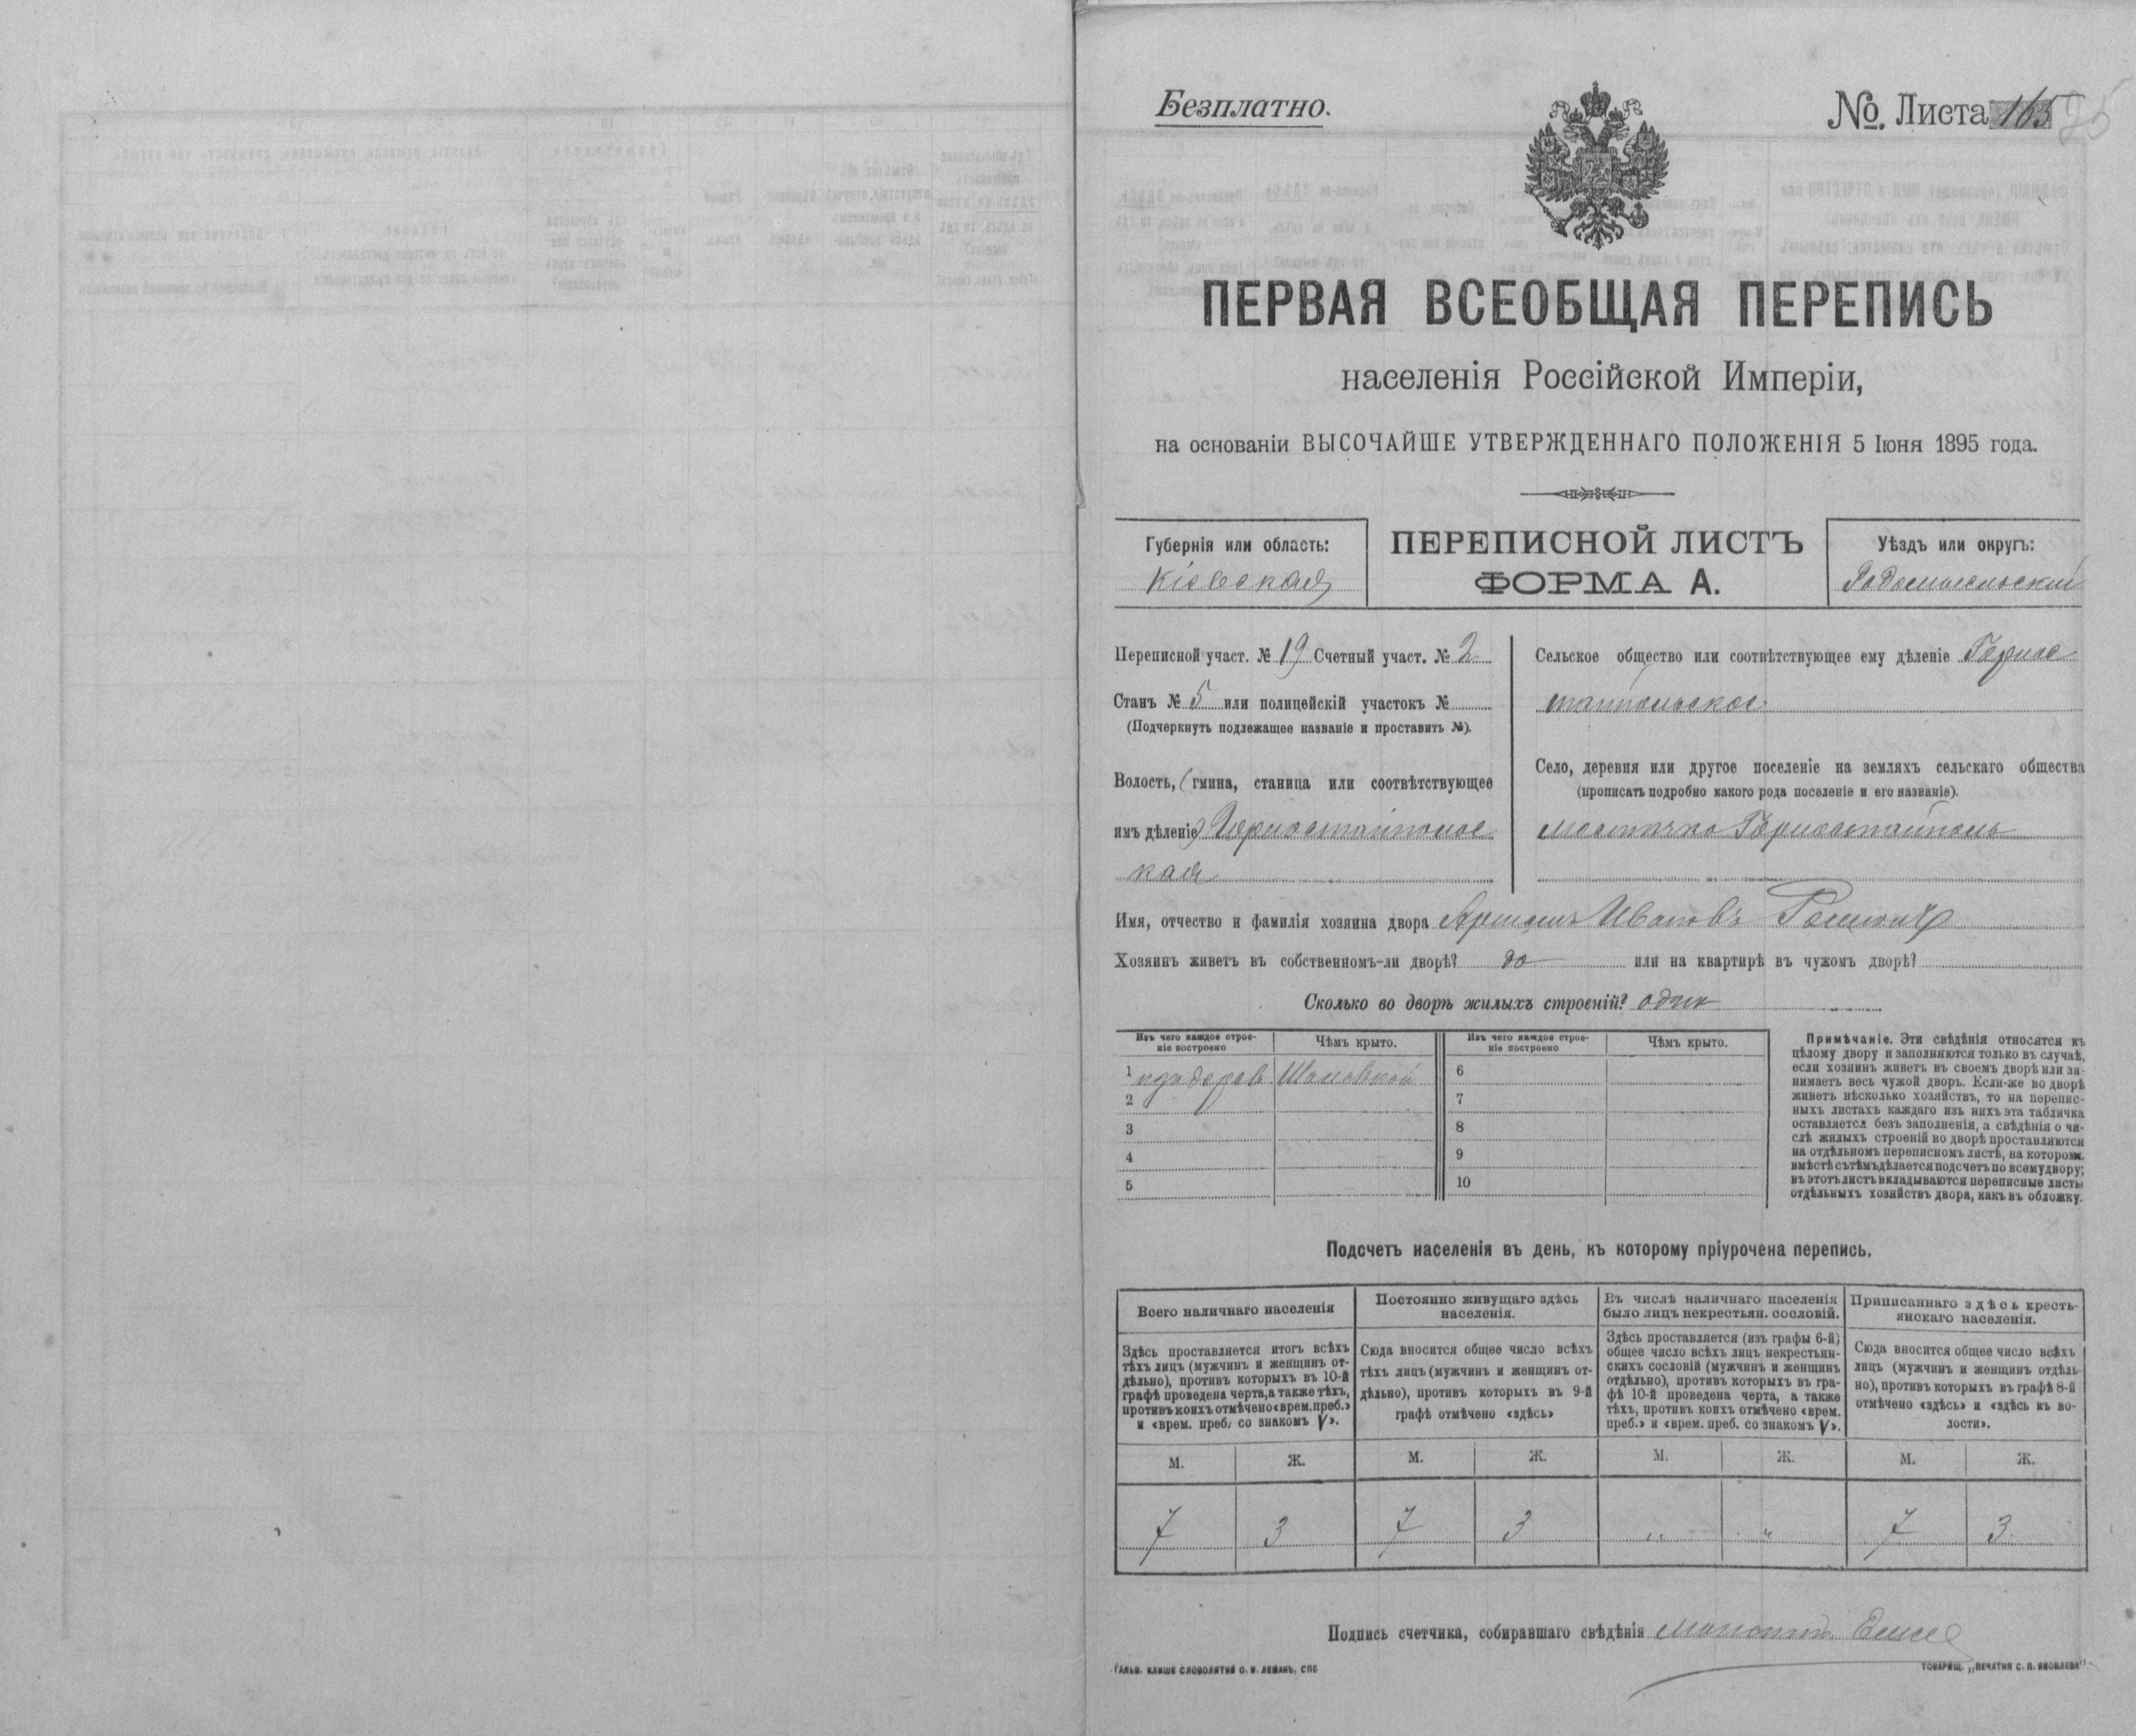 Безплатно.
№. Листа 165
ПЕРВАЯ ВСЕОБЩАЯ ПЕРЕПИСЬ
населенія Россійской Имперіи,
на основаніи ВЫСОЧАЙШЕ УТВЕРЖДЕННАГО ПОЛОЖЕНІЯ 5 Іюня 1895 года.
Губернія или область:
Кіевская
ПЕРЕПИСНОЙ ЛИСТЪ
ФОРМА А.
Уѣздъ или округъ:
Радомысльскій
Переписной участ. № 19 Счетный участ. № 2
Станъ № 5 или полицейскій участокъ №
(Подчеркнуть подлежащее названіе и проставить №).
Волость, (гмина, станица или соотвѣтствующее
имъ дѣленіе) Горностайпольс
кая
Сельское общество или соотвѣтствующее ему дѣленіе Горнос
тайпольское
Село, деревня или другое поселеніе на земляхъ сельскаго общества
(прописать подробно какого рода поселеніе и его названіе).
местечко Горностайполь
Имя, отчество и фамилія хозяина двора Ивановъ
Хозяинъ живетъ въ собственномъ-ли дворѣ? да или на квартирѣ въ чужомъ дворѣ?
Сколько во дворѣ жилыхъ строеній? один
Изъ чего каждое строе-
ніе построено
Чѣмъ крыто.
Изъ чего каждое строе-
ніе построено
Чѣмъ крыто.
1 изъ дерев. Шаловкой 6
2 7
3 8
4 9
5 10
Примѣчаніе. Эти свѣдѣнія относятся къ
цѣлому двору и заполняются только въ случаѣ,
если хозяин живетъ въ своемъ дворѣ или за-
нимаетъ весь чужой дворъ. Если-же во дворѣ
живетъ нѣсколько хозяйствъ, то на перепис-
ныхъ листахъ каждаго изъ нихъ эта табличка
оставляется безъ заполненія, а свѣдѣнія о чи-
слѣ жилыхъ строеній во дворѣ проставляются
на отдѣльномъ переписномъ листѣ, на котором.
вмѣстѣ съ тѣмъ дѣлается подсчетъ по всему двору;
въ этотъ листъ вкладываются переписные листы
отдѣльныхъ хозяйствъ двора, какъ въ обложку.
Подсчетъ населенія въ день, къ которому пріурочена перепись.
Всего наличнаго населенія
Здѣсь проставляется итогъ всѣхъ
тѣхъ лицъ (мужчинъ и женщинъ от-
дѣльно), противъ которыхъ въ 10-й
графѣ проведена черта, а также тѣхъ,
противъ коихъ отмѣчено «врем. преб.»
и «врем. преб. со знакомъ V».
Постоянно живущаго здѣсь
населенія.
Сюда вносится общее число всѣхъ
тѣхъ лицъ (мужчинъ и женщинъ от-
дѣльно), противъ которыхъ въ 9-й
графѣ отмѣчено «здѣсь»
Въ числѣ наличнаго населенія
было лицъ некрестьян. сословій.
Здѣсь проставляется (изъ графы 6-й)
общее число всѣхъ лицъ некрестьян-
скихъ сословій (мужчинъ и женщинъ
отдѣльно), противъ которыхъ въ гра-
фѣ 10-й проведена черта, а также
тѣхъ, противъ коихъ отмѣчено «врем.
преб.» и «врем. преб. со знакомъ V».
Приписаннаго здѣсь кресть-
янскаго населенія.
Сюда вносится общее число всѣхъ
лицъ (мужчинъ и женщинъ отдѣль-
но), противъ которыхъ въ графѣ 8-й
отмѣчено «здѣсь» и «здѣсь къ во-
лости».
М. Ж. М. Ж. М. Ж. М. Ж.
7 3 7 3 „ „ 7 3
Подпись счетчика, собиравшаго свѣдѣнія
ГАЛЬВ. КЛИШЕ СЛОВОЛИТНИ О. И. ЛЕМАНЪ, СПБ
ТОВАРИЩ. „ПЕЧАТНЯ С. П. ЯКОВЛЕВА“